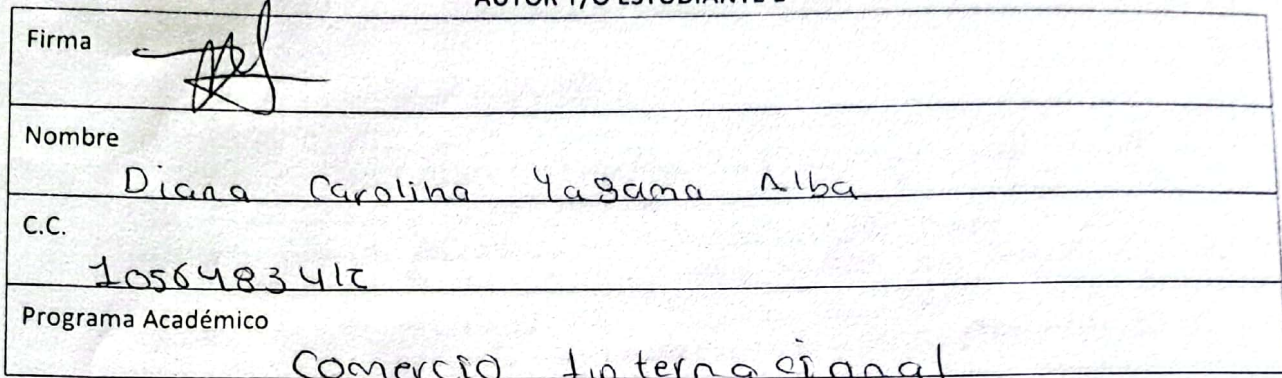 Firma
Nombre
Diana Carolina Yagama Alba
C.C.
Programa Académico
Comercio Internacional